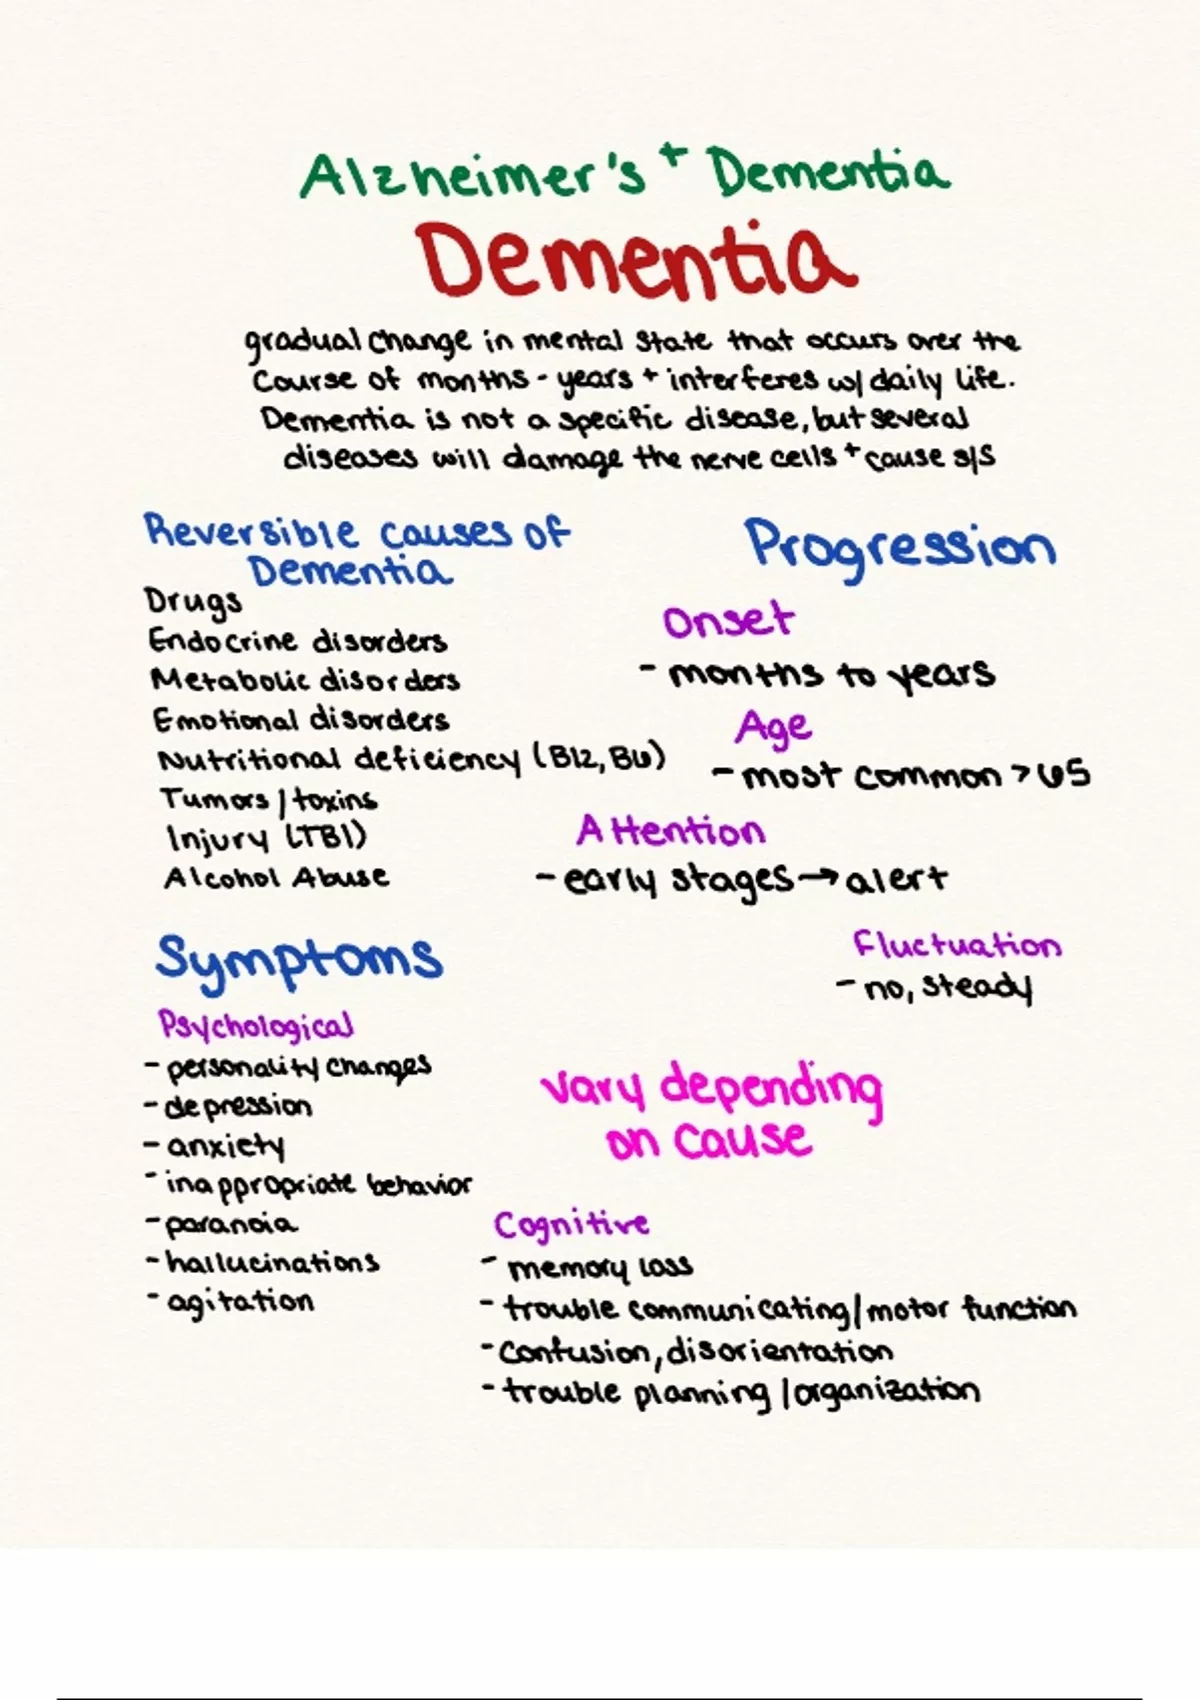 Alzheimer's + Dementia
Dementia
gradual change in mental state that occurs over the
course of months - years + interferes w/ daily life.
Dementia is not a specific disease, but several
diseases will damage the nerve cells + cause s/s
Reversible causes of
Dementia
Drugs
Endocrine disorders
Metabolic disorders
Emotional disorders
Nutritional deficiency (B12, B6)
Tumors / toxins
Injury (TBI)
Alcohol Abuse
Progression
Onset
- months to years
Age
- most common > 65
Attention
- early stages → alert
Fluctuation
- no, steady
Symptoms
Psychological
- personality changes
- depression
- anxiety
- inappropriate behavior
- paranoia
- hallucinations
- agitation
vary depending
on cause
Cognitive
- memory loss
- trouble communicating/motor function
- confusion, disorientation
- trouble planning /organization